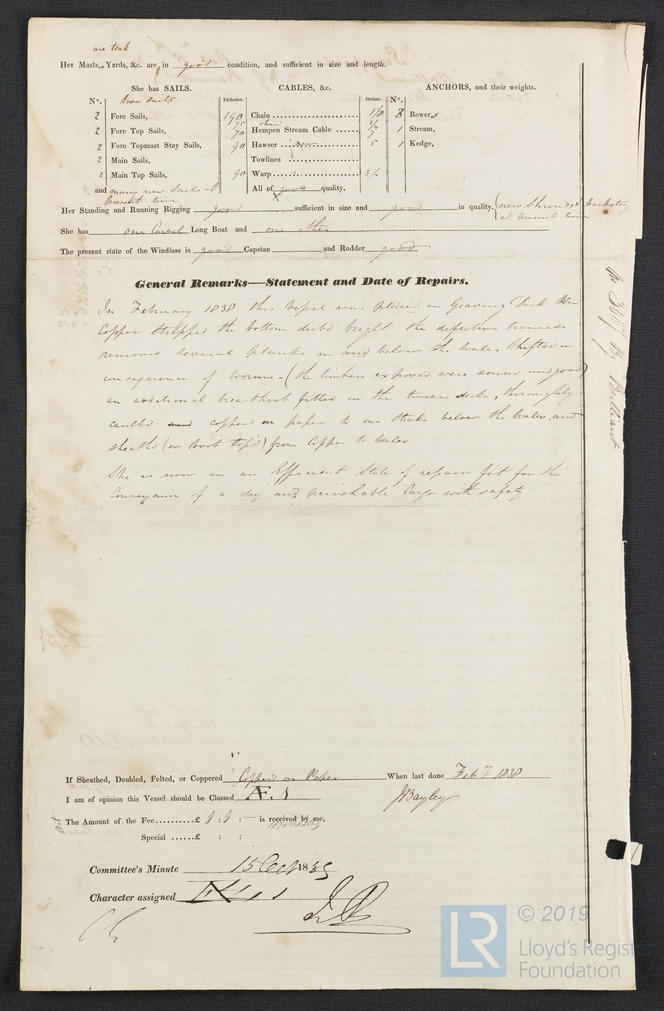 are teak
Her Masts, Yards, &c. are in good condition, and sufficient in size and length.
She has SAILS.
CABLES, &c.
ANCHORS, and their weights.
N°. two suits
Fathoms.
Inches.
N°.
2 Fore Sails,
2 Fore Top Sails,
2 Fore Topmast Stay Sails,
2 Main Sails,
2 Main Top Sails,
and many new Sails at present time
Chain 190
75 chain
Hempen Stream Cable 70 7
Hawser 90 5
Towlines
Warp 90 3½
All of good quality.
Bowers
1 Stream,
1 Kedge,
Her Standing and Running Rigging good sufficient in size and good in quality. (new Shrouds & Backstays at present time
She has one Carvel Long Boat and one other
The present state of the Windlass is good Capstan and Rudder good
General Remarks—Statement and Date of Repairs.
In February 1838 this Vessel was placed in Graving Dock Her
Copper Stripped the bottom bright the defective
removed several planks in and below the Wales Shifted in
consequence of worms — (the timbers exposed were sound and good)
an additional breasthook fitted in the tween decks, thoroughly
caulked and coppered on paper to one strake below the Wales, and
sheathed (or Boot topd) from Copper to Wales
She is now in an Efficient State of repair fit for the
Conveyance of a dry and perishable Cargo with safety.
No 3017 By Brilliant
If Sheathed, Doubled, Felted, or Coppered Copperd on Paper When last done Feby 1838
I am of opinion this Vessel should be Classed Æ. 1
J Bayley
The Amount of the Fee.........£ 1 : 1 : — is received by me,
Special ......£ : :
Committee's Minute 15 Oct 1839
Character assigned Æ 1
© 2019
LR
Lloyd's Register
Foundation